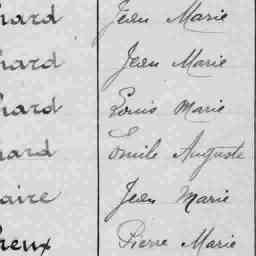 hard Jean Marie
hard Jean Marie
hard Louis Marie
hard Emile Auguste
aire Jean Marie
heux Pierre Marie